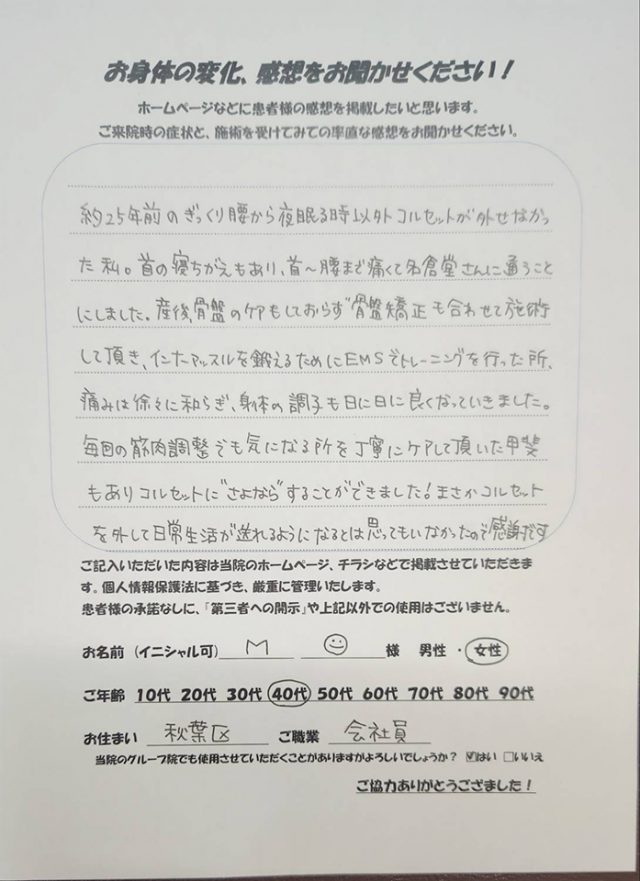 お身体の変化、感想をお聞かせください！
ホームページなどに患者様の感想を掲載したいと思います。
ご来院時の症状と、施術を受けてみての率直な感想をお聞かせください。
約25年前のぎっくり腰から夜眠る時以外コルセットが外せなかっ
た私。首の寝ちがえもあり、首〜腰まで痛くて名倉堂さんに通うこと
にしました。産後、骨盤のケアもしておらず骨盤矯正も合わせて施術
して頂き、インナーマッスルを鍛えるためにEMSでトレーニングを行った所、
痛みは徐々に和らぎ、身体の調子も日に日に良くなっていきました。
毎回の筋肉調整でも気になる所を丁寧にケアして頂いた甲斐
もありコルセットに"さよなら"することができました！まさかコルセット
を外して日常生活が送れるようになるとは思ってもいなかったので感謝です
ご記入いただいた内容は当院のホームページ、チラシなどで掲載させていただきま
す。個人情報保護法に基づき、厳重に管理いたします。
患者様の承諾なしに、「第三者への開示」や上記以外での使用はございません。
お名前（イニシャル可） M 様 男性・女性
ご年齢 10代 20代 30代 40代 50代 60代 70代 80代 90代
お住まい 秋葉区 ご職業 会社員
当院のグループ院でも使用させていただくことがありますがよろしいでしょうか？ ☑はい □いいえ
ご協力ありがとうござました！